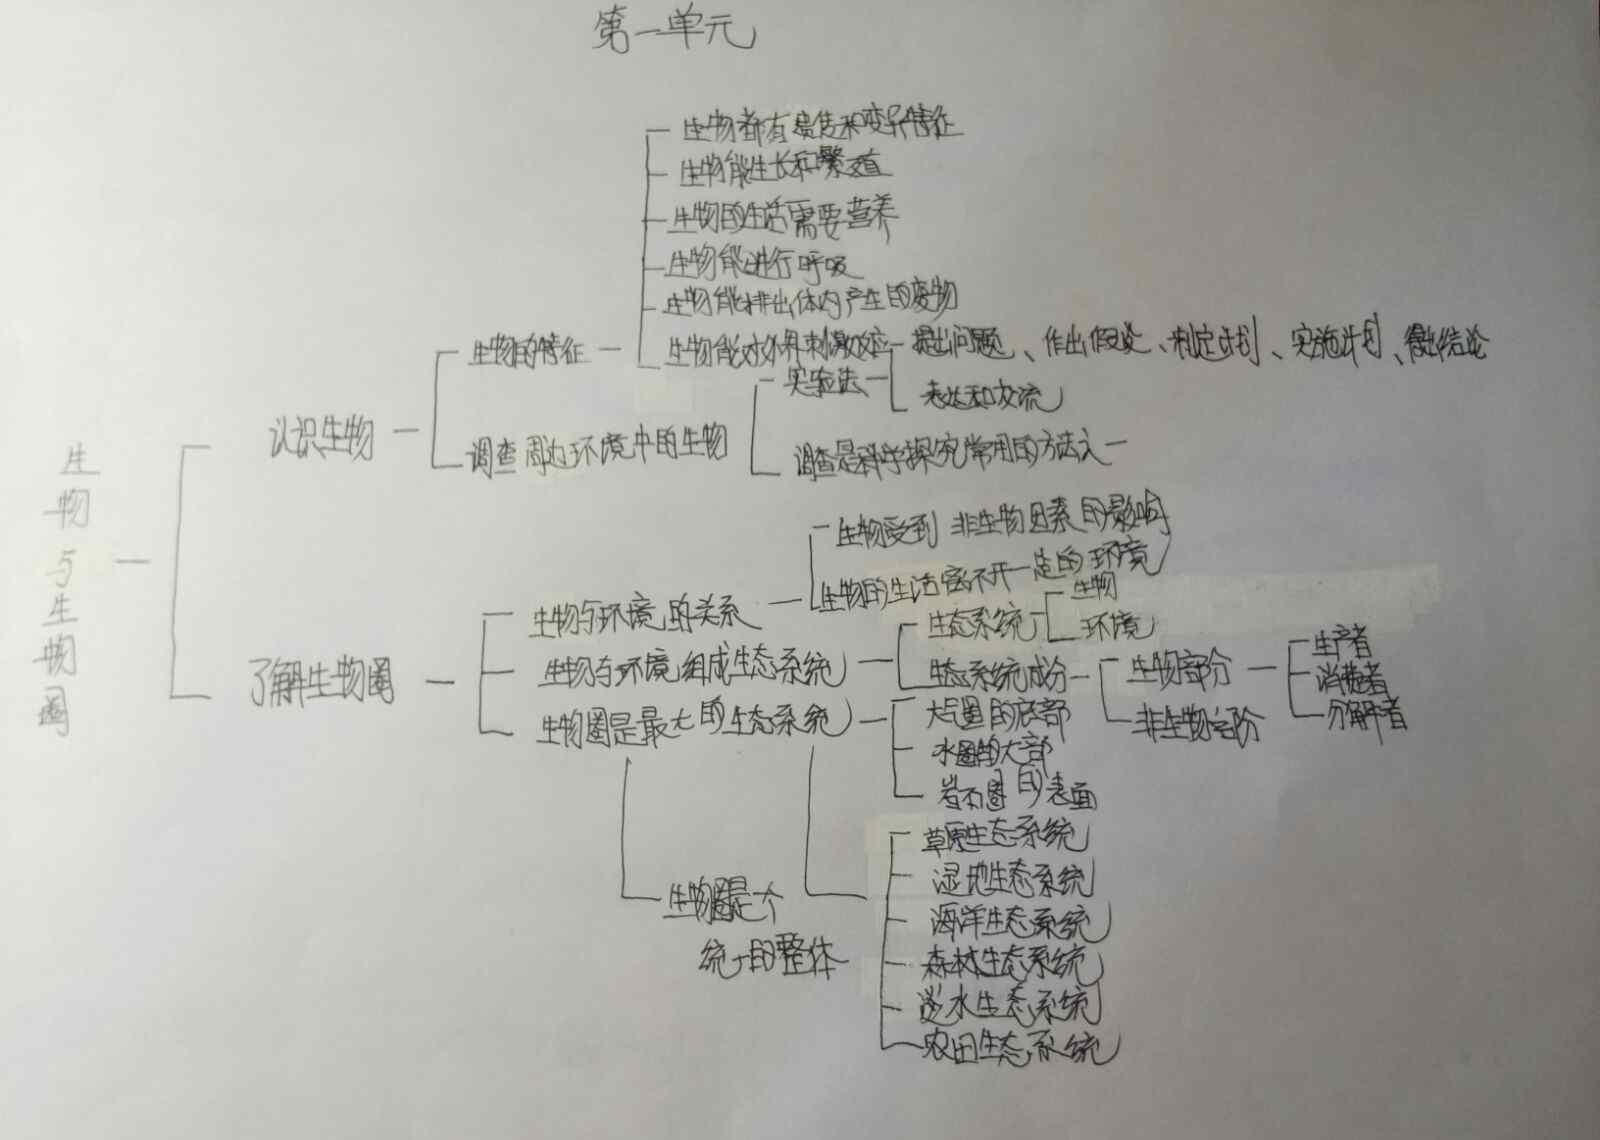 第一单元
生物都有遗传和变异特征
生物能生长和繁殖
生物的生活需要营养
生物能进行呼吸
生物能排出体内产生的废物
生物的特征
生物能对外界刺激反应
提出问题、作出假设、制定计划、实施计划、得出结论
实验法
表达和交流
认识生物
调查周边环境中的生物
调查是科学探究常用的方法之一
生物与生物圈
生物受到非生物因素的影响
生物的生活离不开一定的环境
生物与环境的关系
生态系统
生物
环境
了解生物圈
生物与环境组成生态系统
生态系统成分
生物部分
生产者
消费者
分解者
非生物部分
生物圈是最大的生态系统
大气圈的底部
水圈的大部
岩石圈的表面
草原生态系统
湿地生态系统
生物圈是个
统一的整体
海洋生态系统
森林生态系统
淡水生态系统
农田生态系统